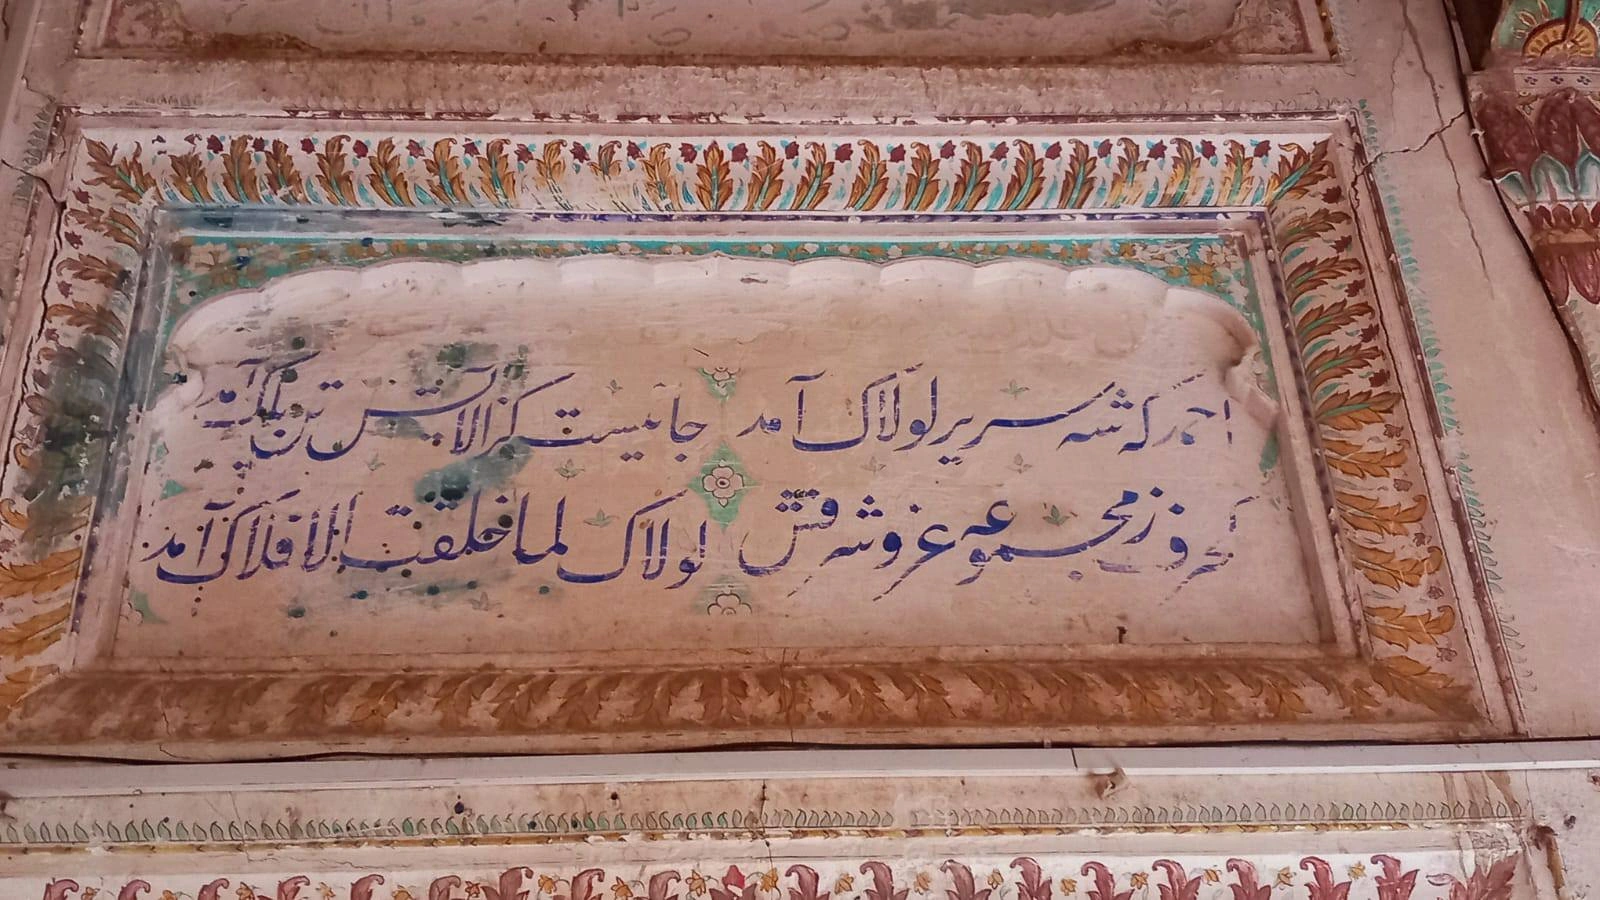 احمد که شه سریر لولاک آمد جانیست کز آلایش تن پاک آمد
یک حرف ز مجموعه عز و شرفش لولاک لما خلقت الافلاک آمد